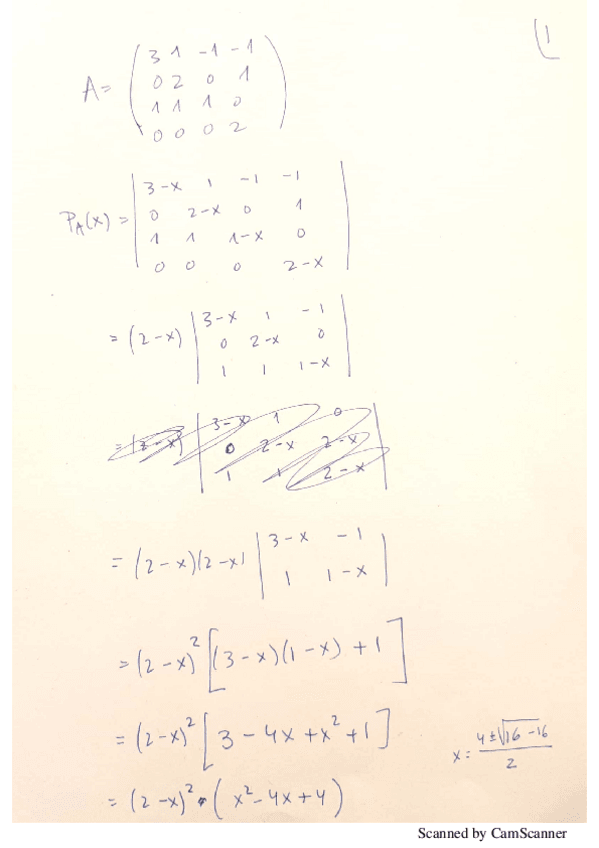 (1
A= ( 3 1 -1 -1
0 2 0 1
1 1 1 0
0 0 0 2 )
P_A(x) = | 3-x 1 -1 -1
0 2-x 0 1
1 1 1-x 0
0 0 0 2-x |
= (2-x) | 3-x 1 -1
0 2-x 0
1 1 1-x |
= (2-x) | 3-x 1 0
0 2-x 2-x
1 1 2-x |
= (2-x)(2-x) | 3-x -1
1 1-x |
= (2-x)² [(3-x)(1-x) +1]
= (2-x)² [3 - 4x + x² + 1]
x= 4±√16-16 / 2
= (2-x)² • (x² - 4x + 4)
Scanned by CamScanner